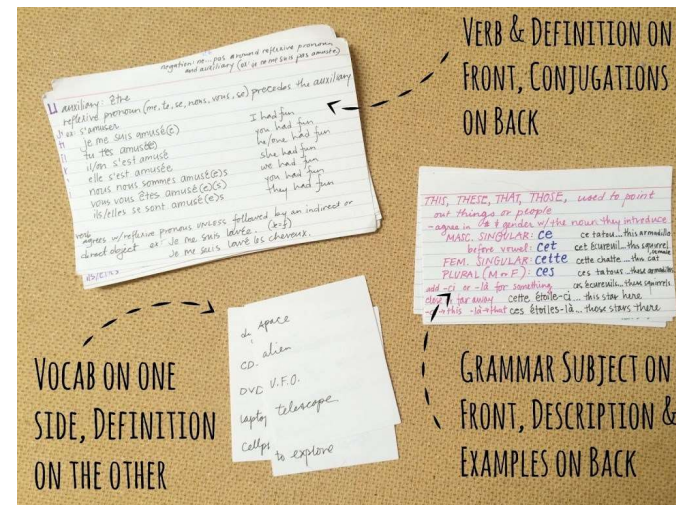 VERB & DEFINITION ON
FRONT, CONJUGATIONS
ON BACK
negation: ne...pas around reflexive pronoun
and auxiliary (ex: je ne me suis pas amusée)
auxiliary: être
reflexive pronoun (me, te, se, nous, vous, se) precedes the auxiliary
ex: s'amuser
je me suis amusé(e) I had fun
tu t'es amusé(e) you had fun
il/on s'est amusé he/one had fun
elle s'est amusée she had fun
nous nous sommes amusé(e)s we had fun
vous vous êtes amusé(e)(s) you had fun
ils/elles se sont amusé(e)s they had fun
verb
agrees w/reflexive pronoun UNLESS followed by an indirect or
direct object ex: Je me suis lavée. (e=f)
Je me suis lavé les cheveux.
THIS, THESE, THAT, THOSE, used to point
out things or people
-agree in # & gender w/ the noun they introduce
MASC. SINGULAR: ce ce tatou...this armadillo
before vowel: cet cet écureuil...this squirrel
FEM. SINGULAR: cette cette chatte...this cat
female
PLURAL (M or F): ces ces tatous...these armadillos
ces écureuils...these squirrels
add -ci or -là for something
close or far away cette étoile-ci...this star here
-ci→this -là→that ces étoiles-là...those stars there
space
CD. alien
DVD U.F.O.
laptop telescope
cellph
to explore
VOCAB ON ONE
SIDE, DEFINITION
ON THE OTHER
GRAMMAR SUBJECT ON
FRONT, DESCRIPTION &
EXAMPLES ON BACK